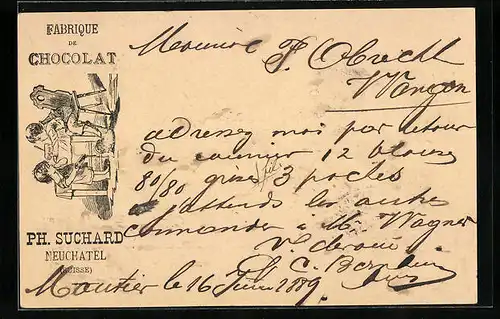 FABRIQUE
DE
CHOCOLAT
PH. SUCHARD
NEUCHATEL
(SUISSE)
Monsieur P. Obrecht
Wangen
adressez moi par retour
du courrier 12 blouses
80/80 grises fil 3 poches
j'attends les autres
commander à M. Wagner
V. dévoué
C.
Moutier le 16 Juin 1889